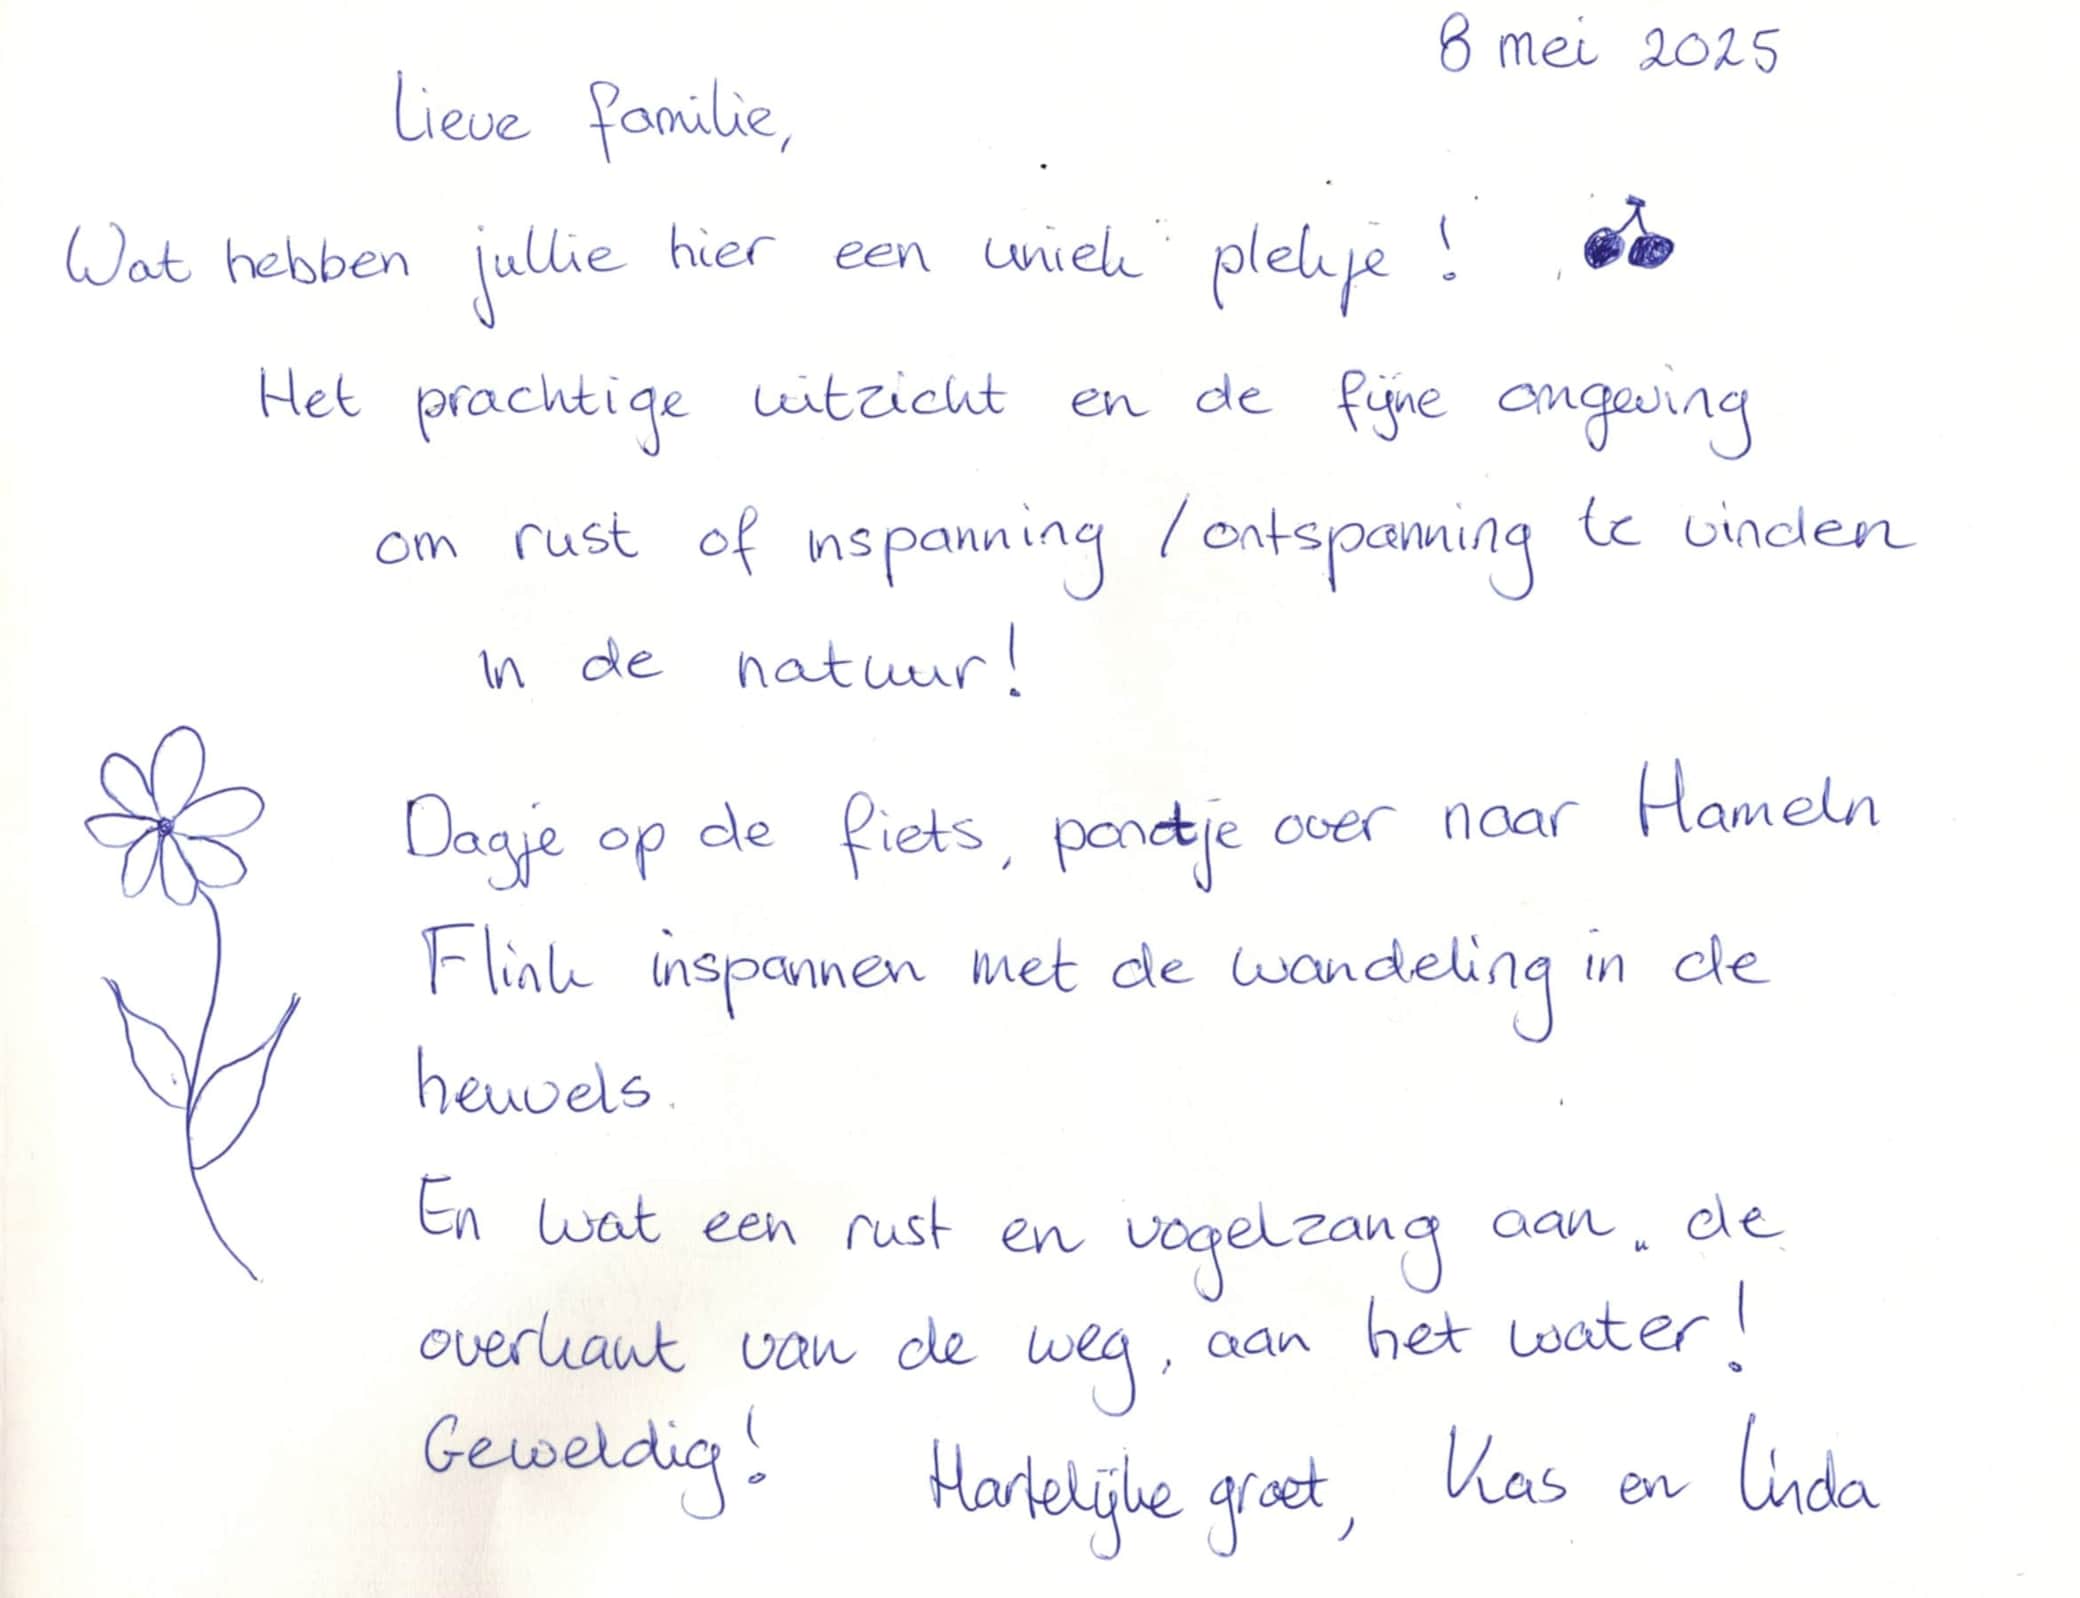 8 mei 2025
Lieve familie,
Wat hebben jullie hier een uniek plekje!
Het prachtige uitzicht en de fijne omgeving
om rust of inspanning / ontspanning te vinden
in de natuur!
Dagje op de fiets, pontje over naar Hameln
Flink inspannen met de wandeling in de
heuvels.
En wat een rust en vogelzang aan de
overkant van de weg, aan het water!
Geweldig! Hartelijke groet, Kas en Linda